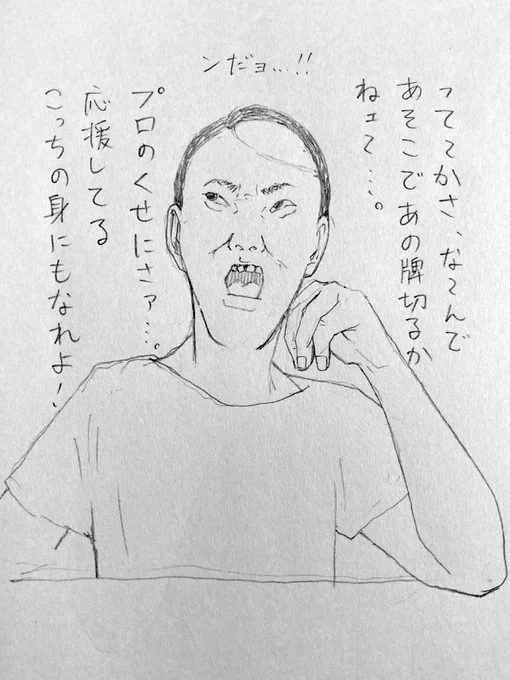 って〜かさ、な〜んで
あそこであの牌切るか
ねェ〜…。
ンだョ…!!
プロのくせにさァ…。
応援してる
こっちの身にもなれよ!